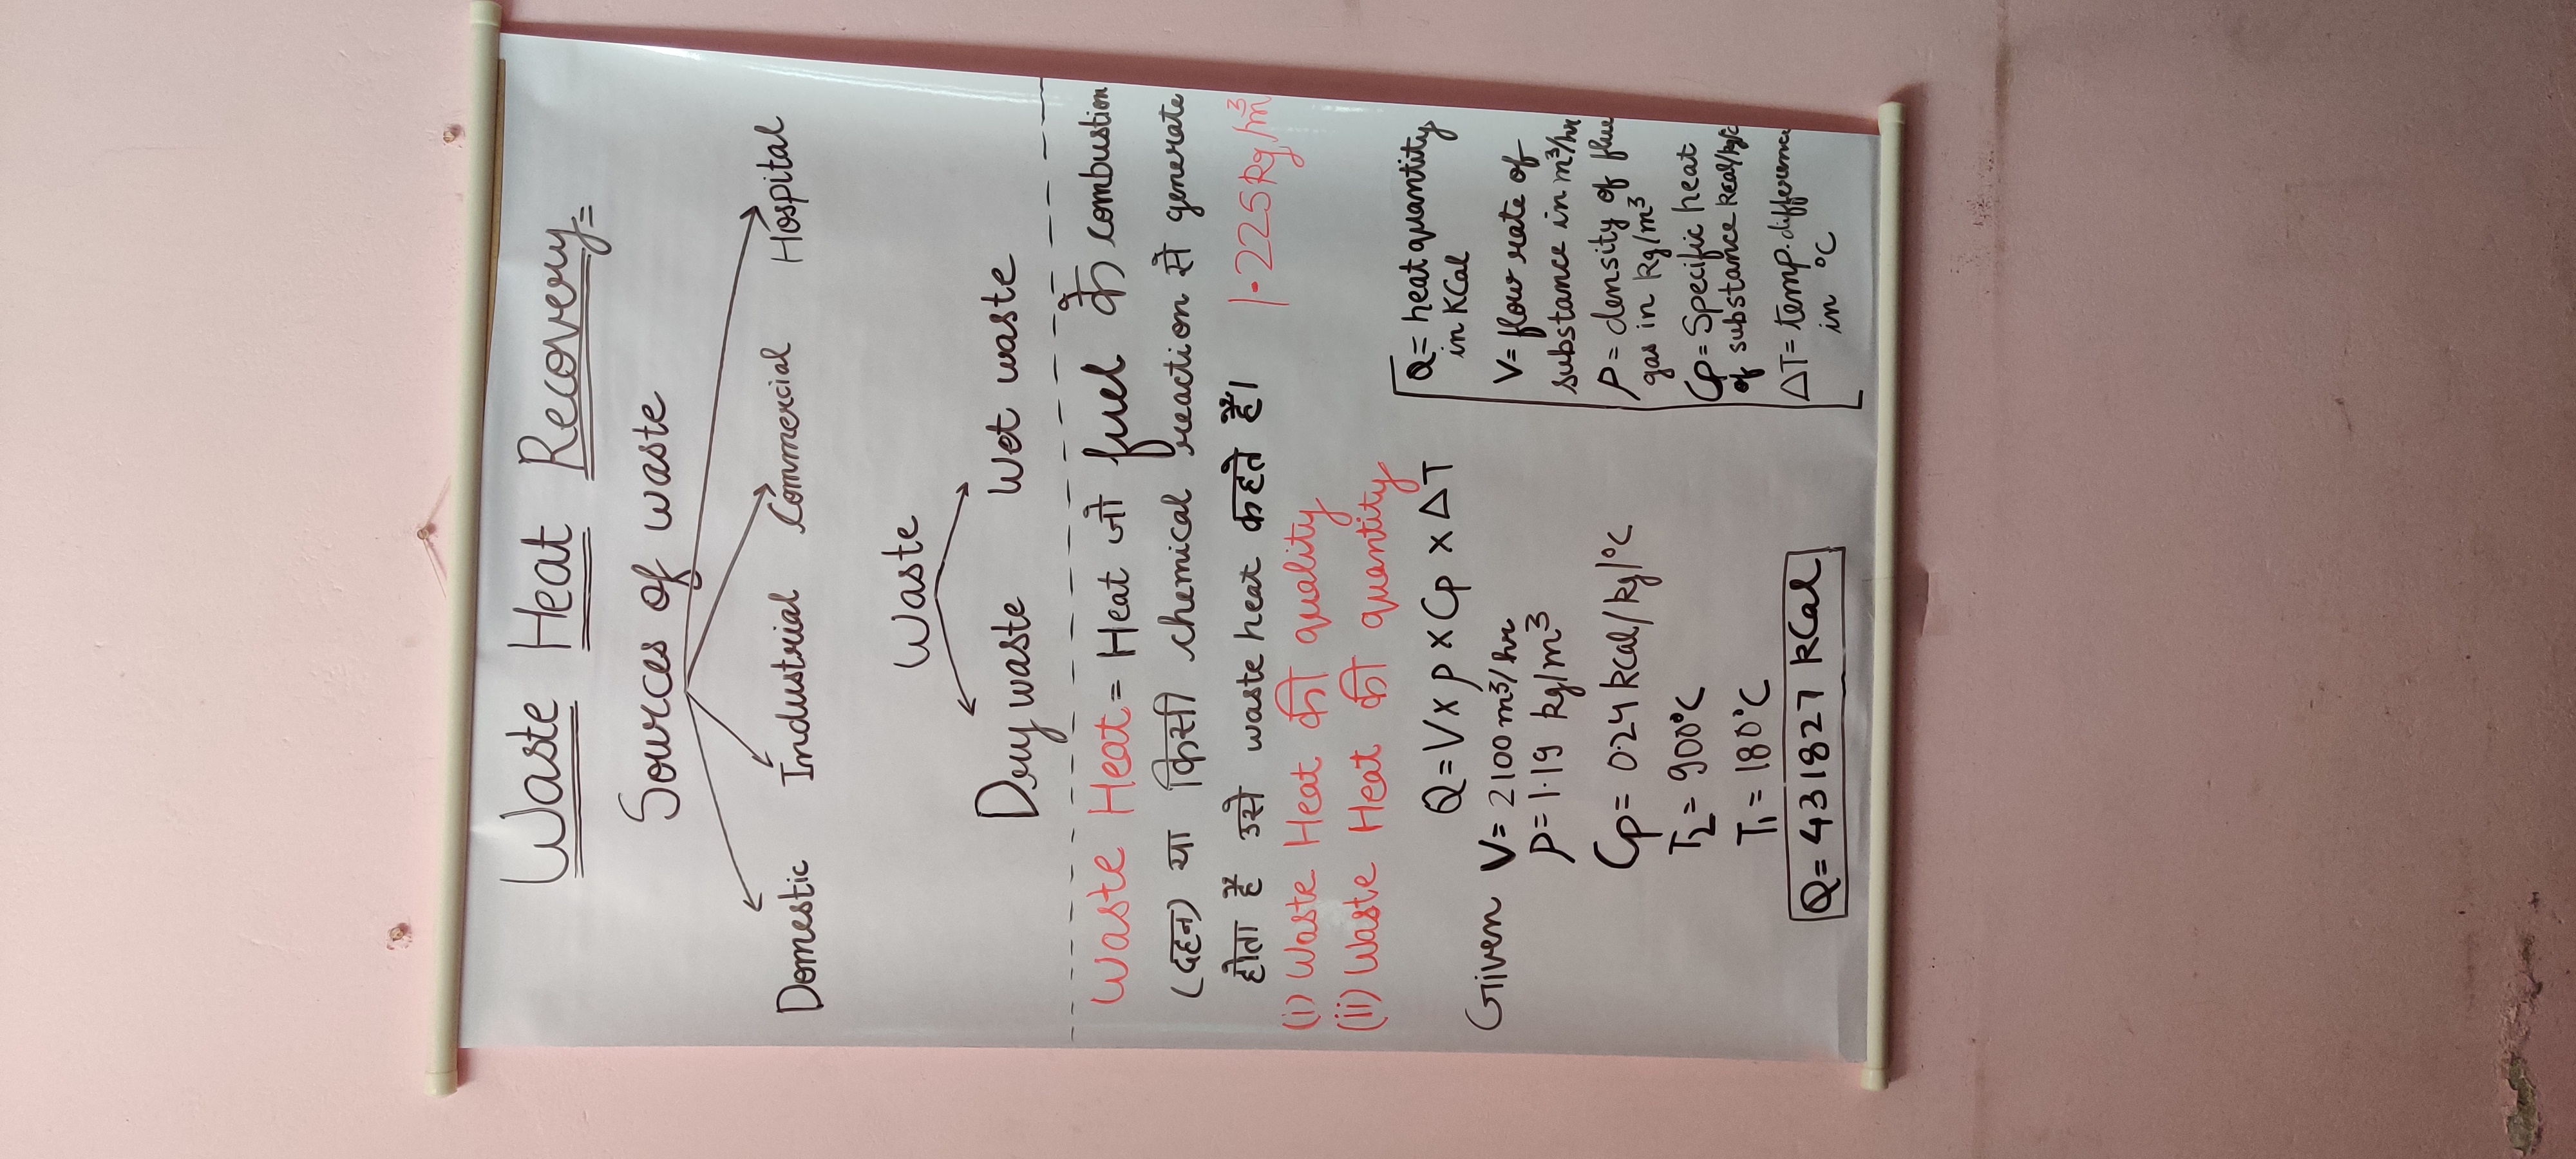 Waste Heat Recovery=
Sources of waste
Domestic Industrial Commercial Hospital
Waste
Dry waste Wet waste
Waste Heat = Heat जो fuel के combustion
(दहन) या किसी chemical reaction से generate
होता हैं उसे waste heat कहते हैं।
1.225 kg/m³
(i) Waste Heat की quality
(ii) Waste Heat की quantity
Q = V x ρ x Cp x ΔT
Given V = 2100 m³/hr
ρ = 1.19 kg/m³
Cp = 0.24 kcal/kg/°C
T₂ = 900°C
T₁ = 180°C
Q = 431827 kCal
Q = heat quantity
in KCal
V = flow rate of
substance in m³/hr
ρ = density of flue
gas in kg/m³
Cp = Specific heat
of substance kcal/kg/°c
ΔT = temp. difference
in °C